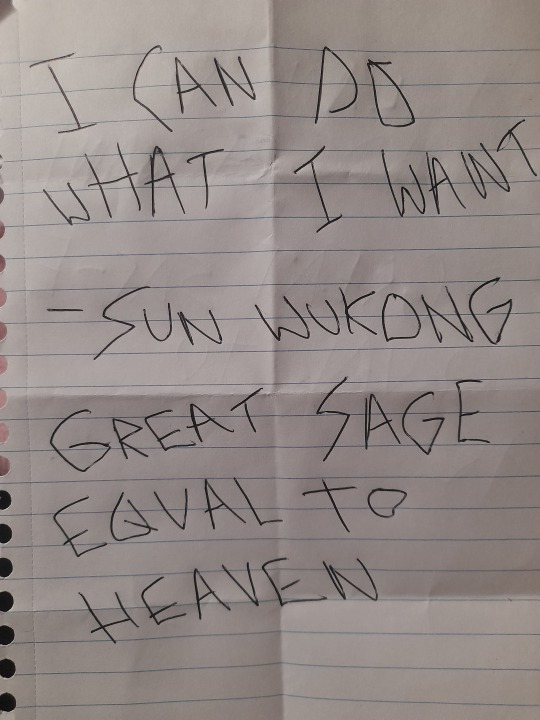 I CAN DO
WHAT I WANT
- SUN WUKONG
GREAT SAGE
EQUAL TO
HEAVEN